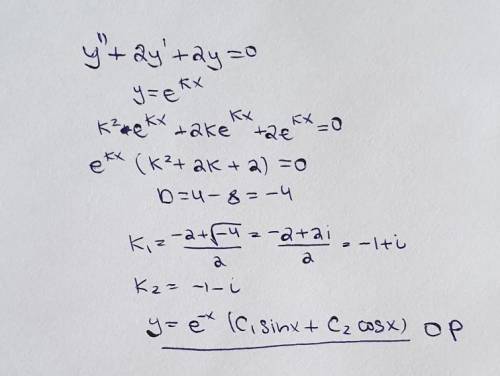 y'' + 2y' + 2y = 0
y = e^{kx}
k² e^{kx} + 2ke^{kx} + 2e^{kx} = 0
e^{kx} (k² + 2k + 2) = 0
D = 4 - 8 = -4
k₁ = \frac{-2+\sqrt{-4}}{2} = \frac{-2+2i}{2} = -1+i
k₂ = -1-i
y = e^{-x} (C₁ sinx + C₂ cosx) OP